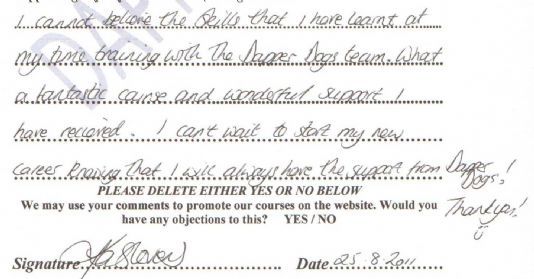 I cannot believe the skills that I have learnt at
my time training with The Dapper Dogs team. What
a fantastic course and wonderful support I
have recieved. I can't wait to start my new
career knowing that I will always have the support from Dapper Dogs!
PLEASE DELETE EITHER YES OR NO BELOW
We may use your comments to promote our courses on the website. Would you
have any objections to this? YES / NO
Thankyou!
Signature Date 25.8.2011